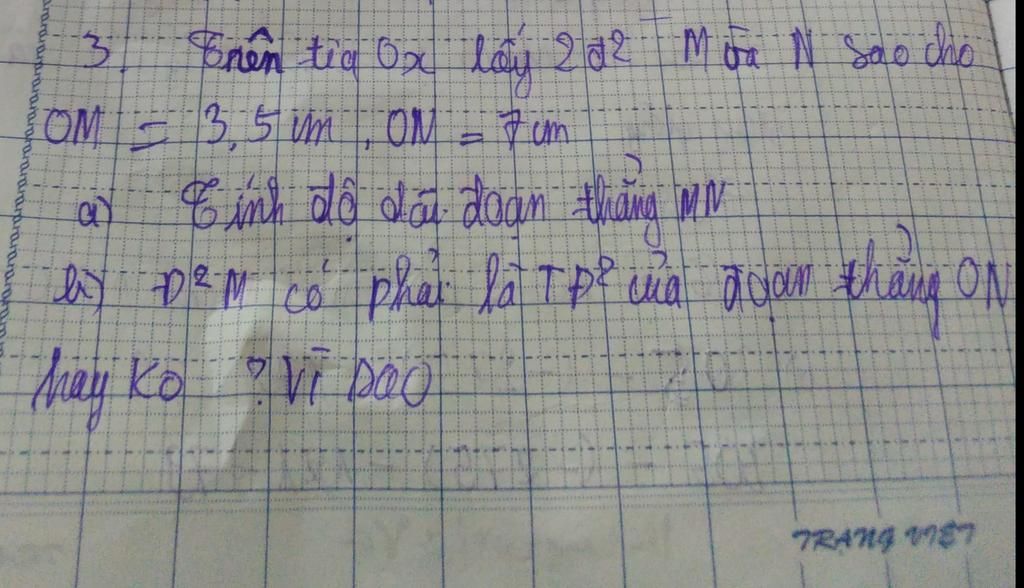 3. Trên tia Ox lấy 2 đ² M và N sao cho
OM = 3,5 cm, ON = 7 cm
a) Tính độ dài đoạn thẳng MN
b) Đ² M có phải là TĐ² của đoạn thẳng ON
hay ko ? Vì sao
TRANG VIỆT